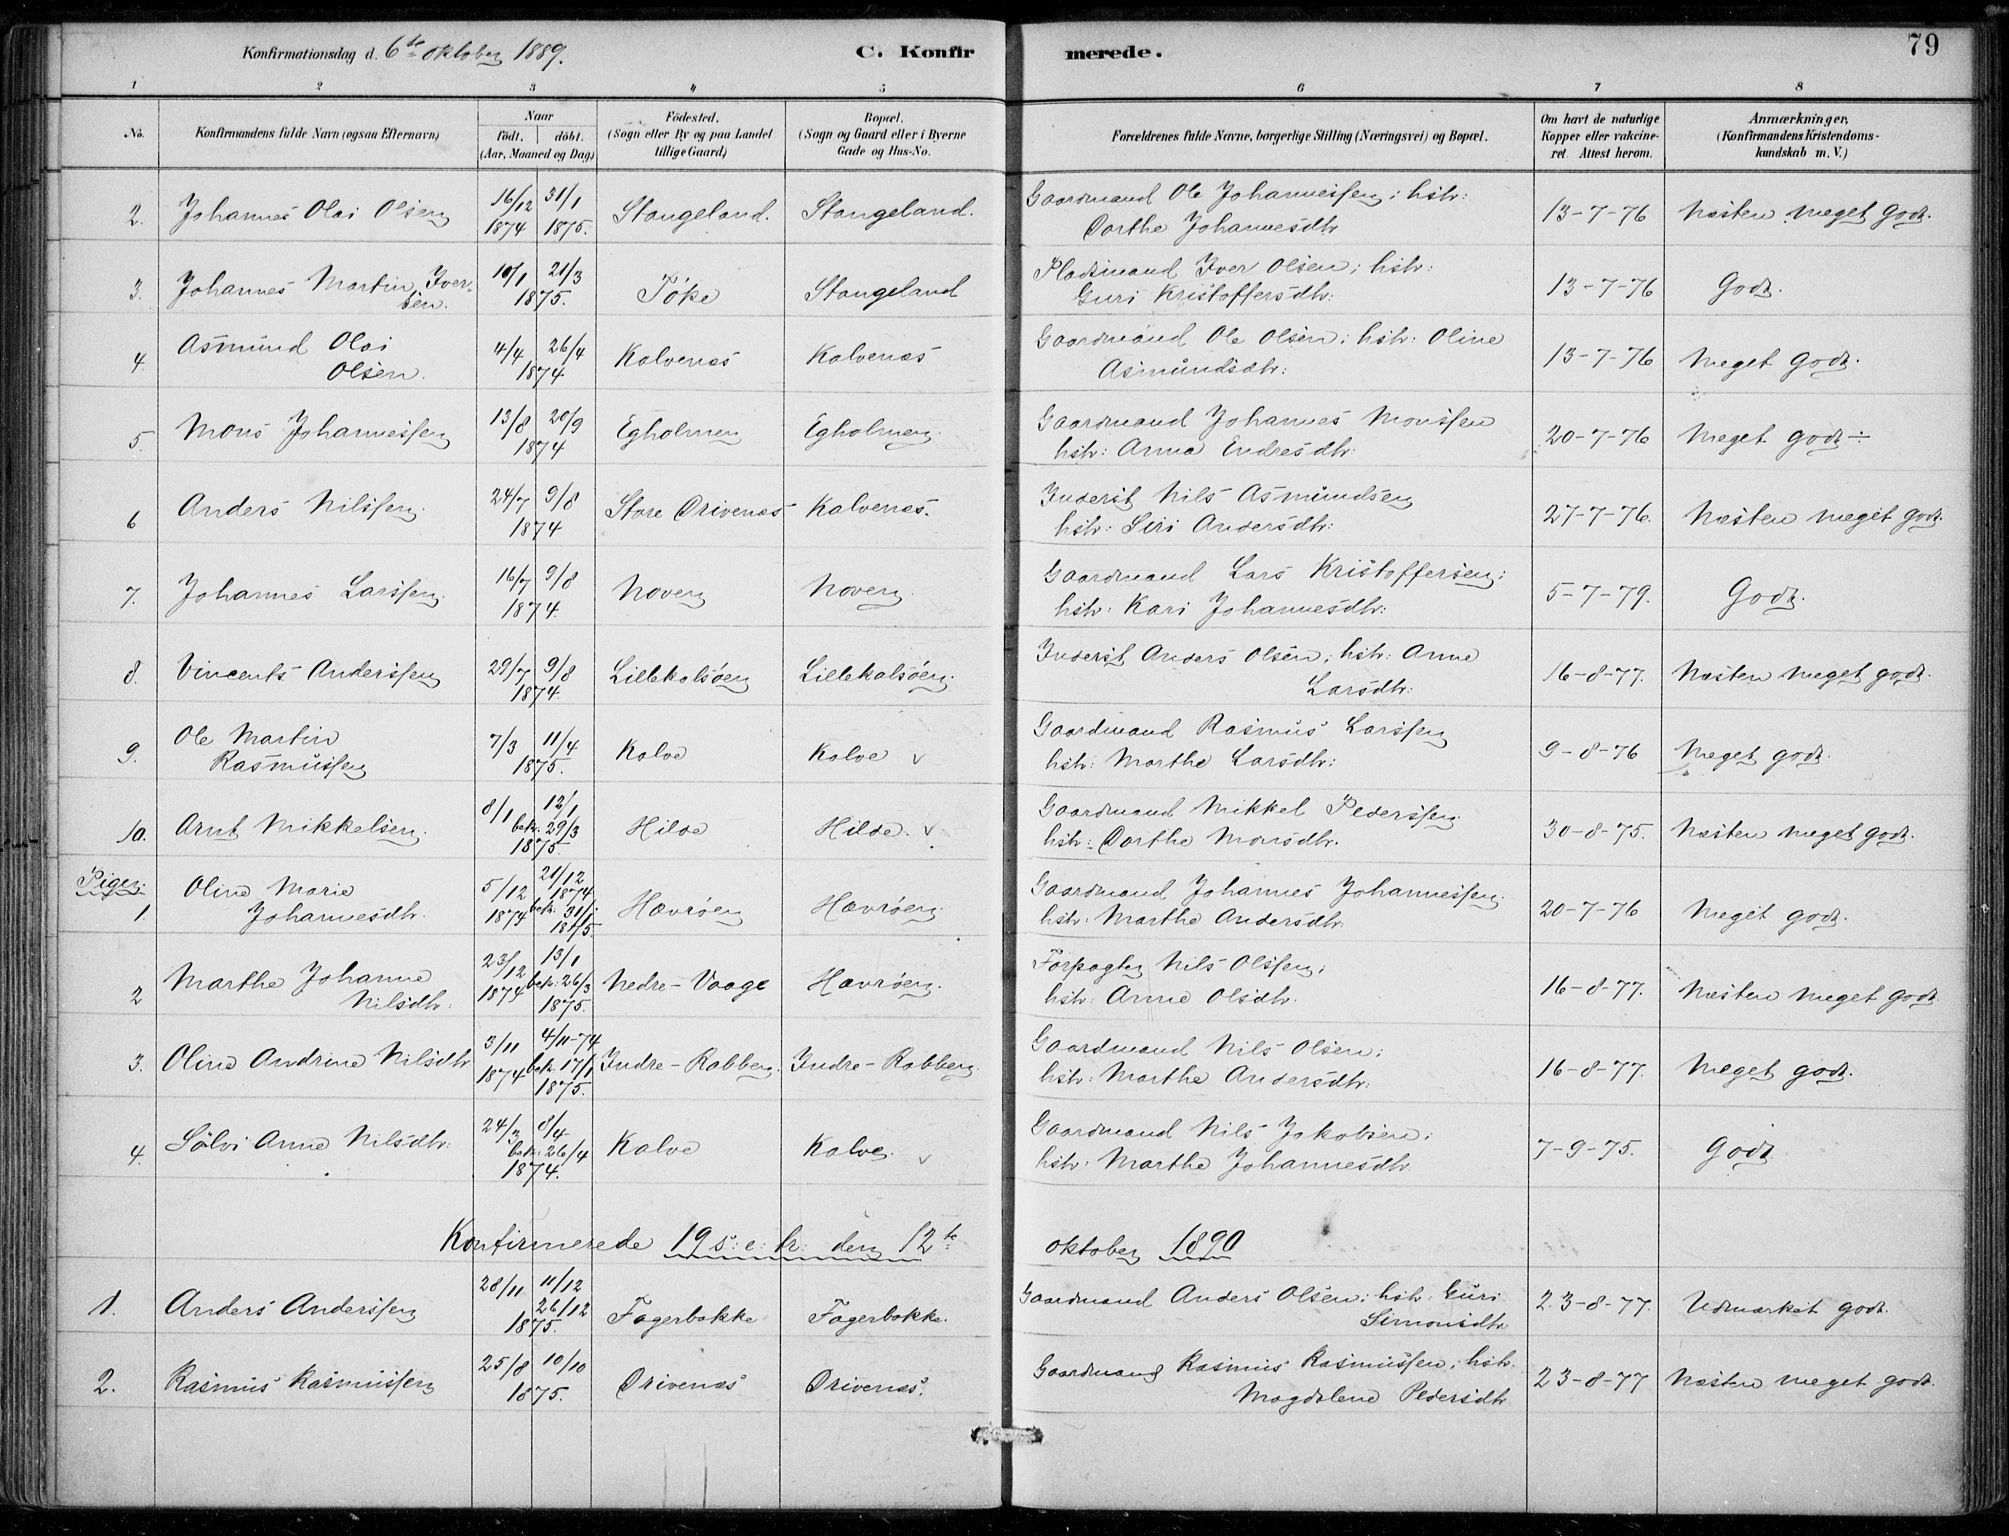 Konfirmationsdag d. 6te oktober 1889.
C. Konfirmerede.
79
1 2 3 4 5 6 7 8
No.
Konfirmandens fulde Navn (ogsaa Efternavn)
Naar
födt. döbt.
(Aar, Maaned og Dag)
Födested.
(Sogn eller By og paa Landet
tillige Gaard)
Bopæl.
(Sogn og Gaard eller i Byerne
Gade og Hus-No.
Forældrenes fulde Navne, borgerlige Stilling (Næringsvei) og Bopæl.
Om havt de naturlige
Kopper eller vakcine-
ret. Attest herom.
Anmærkninger,
(Konfirmandens Kristendoms-
kundskab m. V.)
2. Johannes Olai Olsen 16/12 1874 31/1 1875. Stangeland. Stangeland. Gaardmand Ole Johannessen; hstr:
Dorthe Johannesdtr 13-7-76 Næsten meget godt.
3. Johannes Martin Iver-
sen. 10/1 21/3 1875. Töke Stangeland Pladsmand Iver Olsen; hstr:
Guri Kristoffersdtr: 13-7-76 Godt.
4. Asmund Olai
Olsen. 4/4 26/4 1874 Kalvenæs Kalvenæs Gaardmand Ole Olsen; hstr: Oline
Asmundsdtr: 13-7-76 Meget godt.
5. Mons Johannessen 13/8 20/9 1874 Egholmen Egholmen. Gaardmand Johannes Monssen
hstr: Anna Endresdtr: 20-7-76 Meget godt ÷
6 Anders Nilssen. 24/7 9/8 1874 Store Drivenæs Kalvenæs. Inderst Nils Asmundsen
hstr: Siri Andersdtr: 27-7-76. Næsten meget godt.
7. Johannes Larssen. 16/7 9/8 1874. Noven Noven. Gaardmand Lars Kristoffersen;
hstr: Kari Johannesdtr: 5-7-79. Godt.
8. Vincents Anderssen 29/7 9/8 1874. Lillekalsöen Lillekalsöen. Inderst Anders Olsen; hstr: Anne
Larsdtr: 16-8-77. Næsten meget godt.
9. Ole Martin
Rasmussen 7/3 11/4 1875. Kalve Kalve v Gaardmand Rasmus Larssen
hstr: Marthe Larsdtr: 9-8-76 Meget godt.
10. Arnt Mikkelsen. 8/1 12/1 bek. 29/3 1875 Hilde Hilde. v Gaardmand Mikkel Pederssen.
hstr: Dorthe Monsdtr. 30-8-75. Næsten meget godt.
Piger:
1. Oline Marie
Johannesdtr. 5/12 1874 21/12 1874 bek. 31/1 1875. Hevröen Hevröen. Gaardmand Johannes Johannessen.
hstr: Marthe Andersdtr. 20-7-76 Meget godt.
2 Marthe Johanne
Nilsdtr. 23/12 1874 13/1 bek: 26/3 1875. Nedre-Vaage Hevröen. Forpagter Nils Olssen;
hstr: Anne Olsdtr. 16-8-77. Næsten meget godt
3. Oline Andrine Nilsdtr 3/11 1874 4/11-74 bek. 17/1 1875. Indre-Robben. Indre-Robben. Gaardmand Nils Olsen;
hstr: Marthe Andersdtr: 16-8-77. Meget godt.
4. Sölvi Anne Nilsdtr: 24/3 8/4 bek: 26/4 1874. Kalve Kalve. v Gaardmand Nils Jakobsen;
hstr: Marthe Johannesdtr. 7-9-75. Godt
Konfirmerede 19 s: e: tr: den 12te oktober 1890
1. Anders Anderssen 28/11 11/12 26/12 1875. Fagerbakke Fagerbakke. Gaardmand Anders Olsen; hstr. Guri
Simonsdtr 23-8-77. Udmærket godt.
2. Rasmus Rasmussen 25/8 10/10 1875. Drivenæs Drivenæs. Gaardmand Rasmus Rasmussen; hstr.
Magdalene Pedersdtr 23-8-77 Næsten meget godt.